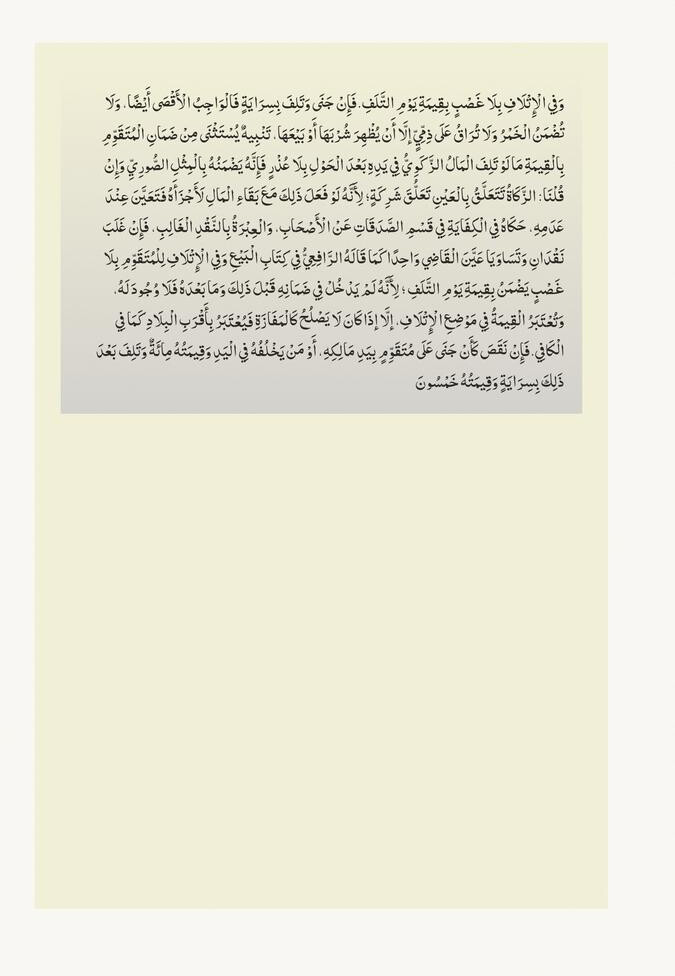 وَفِي الْإِتْلَافِ بِلَا غَصْبٍ بِقِيمَةِ يَوْمِ التَّلَفِ. فَإِنْ جَنَى وَتَلِفَ بِسِرَايَةٍ فَالْوَاجِبُ الْأَقْصَى أَيْضًا. وَلَا
تُضْمَنُ الْخَمْرُ وَلَا تُرَاقُ عَلَى ذِمِّيٍّ إلَّا أَنْ يُظْهِرَ شُرْبَهَا أَوْ بَيْعَهَا. تَنْبِيهٌ يُسْتَثْنَى مِنْ ضَمَانِ الْمُتَقَوِّمِ
بِالْقِيمَةِ مَا لَوْ تَلِفَ الْمَالُ الزَّكَوِيُّ فِي يَدِهِ بَعْدَ الْحَوْلِ بِلَا عُذْرٍ فَإِنَّهُ يَضْمَنُهُ بِالْمِثْلِ الصُّورِيِّ وَإِنْ
قُلْنَا: الزَّكَاةُ تَتَعَلَّقُ بِالْعَيْنِ تَعَلُّقَ شَرِكَةٍ؛ لِأَنَّهُ لَوْ فَعَلَ ذَلِكَ مَعَ بَقَاءِ الْمَالِ لَأَجْزَأَهُ فَتَعَيَّنَ عِنْدَ
عَدَمِهِ. حَكَاهُ فِي الْكِفَايَةِ فِي قَسْمِ الصَّدَقَاتِ عَنْ الْأَصْحَابِ. وَالْعِبْرَةُ بِالنَّقْدِ الْغَالِبِ. فَإِنْ غَلَبَ
نَقْدَانِ وَتَسَاوَيَا عَيَّنَ الْقَاضِي وَاحِدًا كَمَا قَالَهُ الرَّافِعِيُّ فِي كِتَابِ الْبَيْعِ وَفِي الْإِتْلَافِ لِلْمُتَقَوِّمِ بِلَا
غَصْبٍ يَضْمَنُ بِقِيمَةِ يَوْمِ التَّلَفِ؛ لِأَنَّهُ لَمْ يَدْخُلْ فِي ضَمَانِهِ قَبْلَ ذَلِكَ وَمَا بَعْدَهُ فَلَا وُجُودَ لَهُ.
وَتُعْتَبَرُ الْقِيمَةُ فِي مَوْضِعِ الْإِتْلَافِ. إلَّا إذَا كَانَ لَا يَصْلُحُ كَالْمَفَازَةِ فَيُعْتَبَرُ بِأَقْرَبِ الْبِلَادِ كَمَا فِي
الْكَافِي. فَإِنْ نَقَصَ كَأَنْ جَنَى عَلَى مُتَقَوِّمٍ بِيَدِ مَالِكِهِ. أَوْ مَنْ يَخْلُفُهُ فِي الْيَدِ وَقِيمَتُهُ مِائَةٌ وَتَلِفَ بَعْدَ
ذَلِكَ بِسِرَايَةٍ وَقِيمَتُهُ خَمْسُونَ